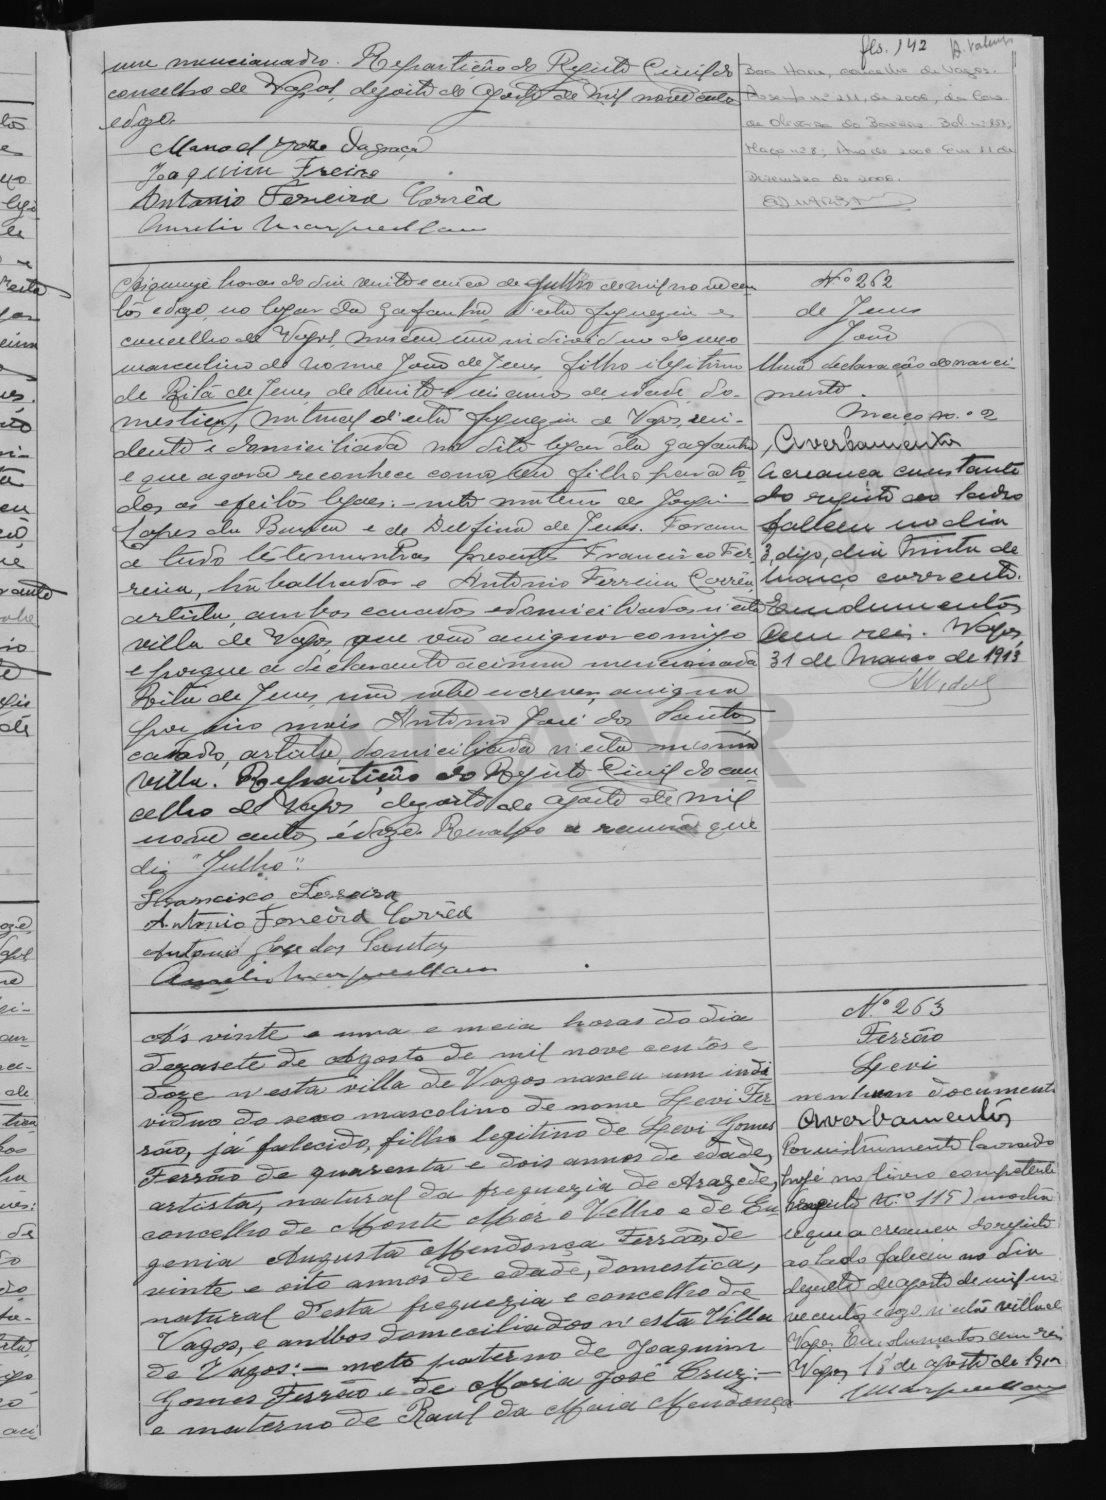 fls. 142
mencionado. Repartição do Registo Civil do
concelho de Vagos, dezoito de Agosto de mil novecentos
e doze.
Manoel José da Graça
Joaquim Freire
Antonio Ferreira Corrêa
Boa Hora, concelho de Vagos.
Assento nº 211, de 2000, da Cons.
de Oliveira do Bairro. Bol. nº
Maço nº 8; Ano de 2000. Em 11 de
Dezembro de 2000.
Ás quinze horas do dia vinte e cinco de Julho de mil novecen-
tos e doze, no logar da Gafanha, d'esta freguezia e
concelho de Vagos, nasceu um individuo do sexo
masculino de nome João de Jesus, filho ilegitimo
de Rita de Jesus, de vinte e seis annos de idade, do-
mestica, natural d'esta freguezia de Vagos, resi-
dente e domiciliada no dito logar da Gafanha,
e que agora reconhece como seu filho para to-
dos os efeitos legaes: — neto materno de
Lopes da Barra e de Delfina de Jesus. Foram
a tudo testemunhas presentes Francisco Fer-
reira, trabalhador e Antonio Ferreira Corrêa,
artista, ambos casados e domiciliados n'esta
villa de Vagos, que vão assignar comigo
e porque a declarante acima mencionada
Rita de Jesus, não sabe escrever, assigna
por ella mais Antonio José dos Santos
casado, artista, domiciliado n'esta mesma
villa. Repartição do Registo Civil do con-
celho de Vagos dezoito de agosto de mil
nove centos e doze. Resalvo a rasura que
diz "Julho".
Francisco Ferreira
Antonio Ferreira Corrêa
Antonio José dos Santos
Nº 262
de Jesus
João
Uma declaração de nasci-
mento.
Maço n.º 2
Averbamento
A creança constante
do registo ao lado
faleceu no dia
3, digo, dia trinta de
março corrente.
Emolumentos
cem reis. Vagos,
31 de Março de 1913
Ás vinte e uma e meia horas do dia
dezasete de Agosto de mil nove centos e
doze n'esta villa de Vagos nasceu um indi-
viduo do sexo mascolino de nome Levi Fer-
rão, já falecido, filho legitimo de Levi Gomes
Ferrão de quarenta e dois annos de edade,
artista, natural da freguezia de Arazede,
concelho de Monte Mor o Velho e de Eu-
genia Augusta Mendonça Ferrão, de
vinte e oito annos de edade, domestica,
natural d'esta freguezia e concelho de
Vagos, e ambos domeciliados n'esta Villa
de Vagos: — neto paterno de Joaquim
Gomes Ferrão e de Maria José Cruz: —
e materno de Raul da Maia Mendonça
Nº 263
Ferrão
Levi
nenhum documento
Averbamentos
Por instrumento lavrado
hoje no livro competente
(registo n.º 115) mostra
se que a creança do registo
ao lado faleceu no dia
dezoito de agosto de mil no
vecentos e doze n'esta villa de
Vagos. Emolumentos cem reis
Vagos, 18 de agosto de 1912